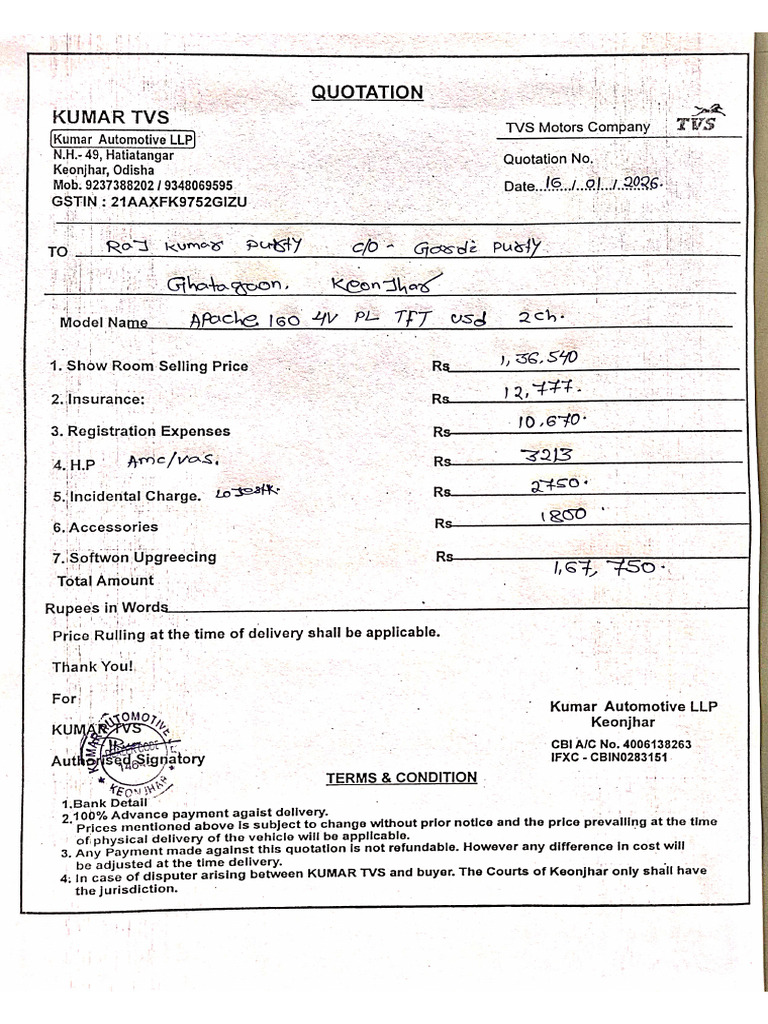 QUOTATION
KUMAR TVS
Kumar Automotive LLP
N.H.- 49, Hatiatangar
Keonjhar, Odisha
Mob. 9237388202 / 9348069595
GSTIN : 21AAXFK9752GIZU
TVS Motors Company TVS
Quotation No.
Date...16.../...01.../...2026.
TO Raj Kumar Purty C/O - Gardi Purty
Ghatagaon, Keonjhar
Model Name Apache 160 4V PL TFT USD 2ch.
1. Show Room Selling Price Rs 1,36,540
2. Insurance: Rs 12,777.
3. Registration Expenses Rs 10,670.
4. H.P Amc/vas. Rs 3213
5. Incidental Charge. Rs 2750.
6. Accessories Rs 1800
7. Softwon Upgreecing Rs
Total Amount 1,67,750.
Rupees in Words
Price Rulling at the time of delivery shall be applicable.
Thank You!
For
KUMAR TVS
Authorised Signatory
KUMAR AUTOMOTIVE
KEONJHAR
Kumar Automotive LLP
Keonjhar
CBI A/C No. 4006138263
IFXC - CBIN0283151
TERMS & CONDITION
1.Bank Detail
2.100% Advance payment agaist delivery.
Prices mentioned above is subject to change without prior notice and the price prevailing at the time
of physical delivery of the vehicle will be applicable.
3. Any Payment made against this quotation is not refundable. However any difference in cost will
be adjusted at the time delivery.
4. In case of disputer arising between KUMAR TVS and buyer. The Courts of Keonjhar only shall have
the jurisdiction.